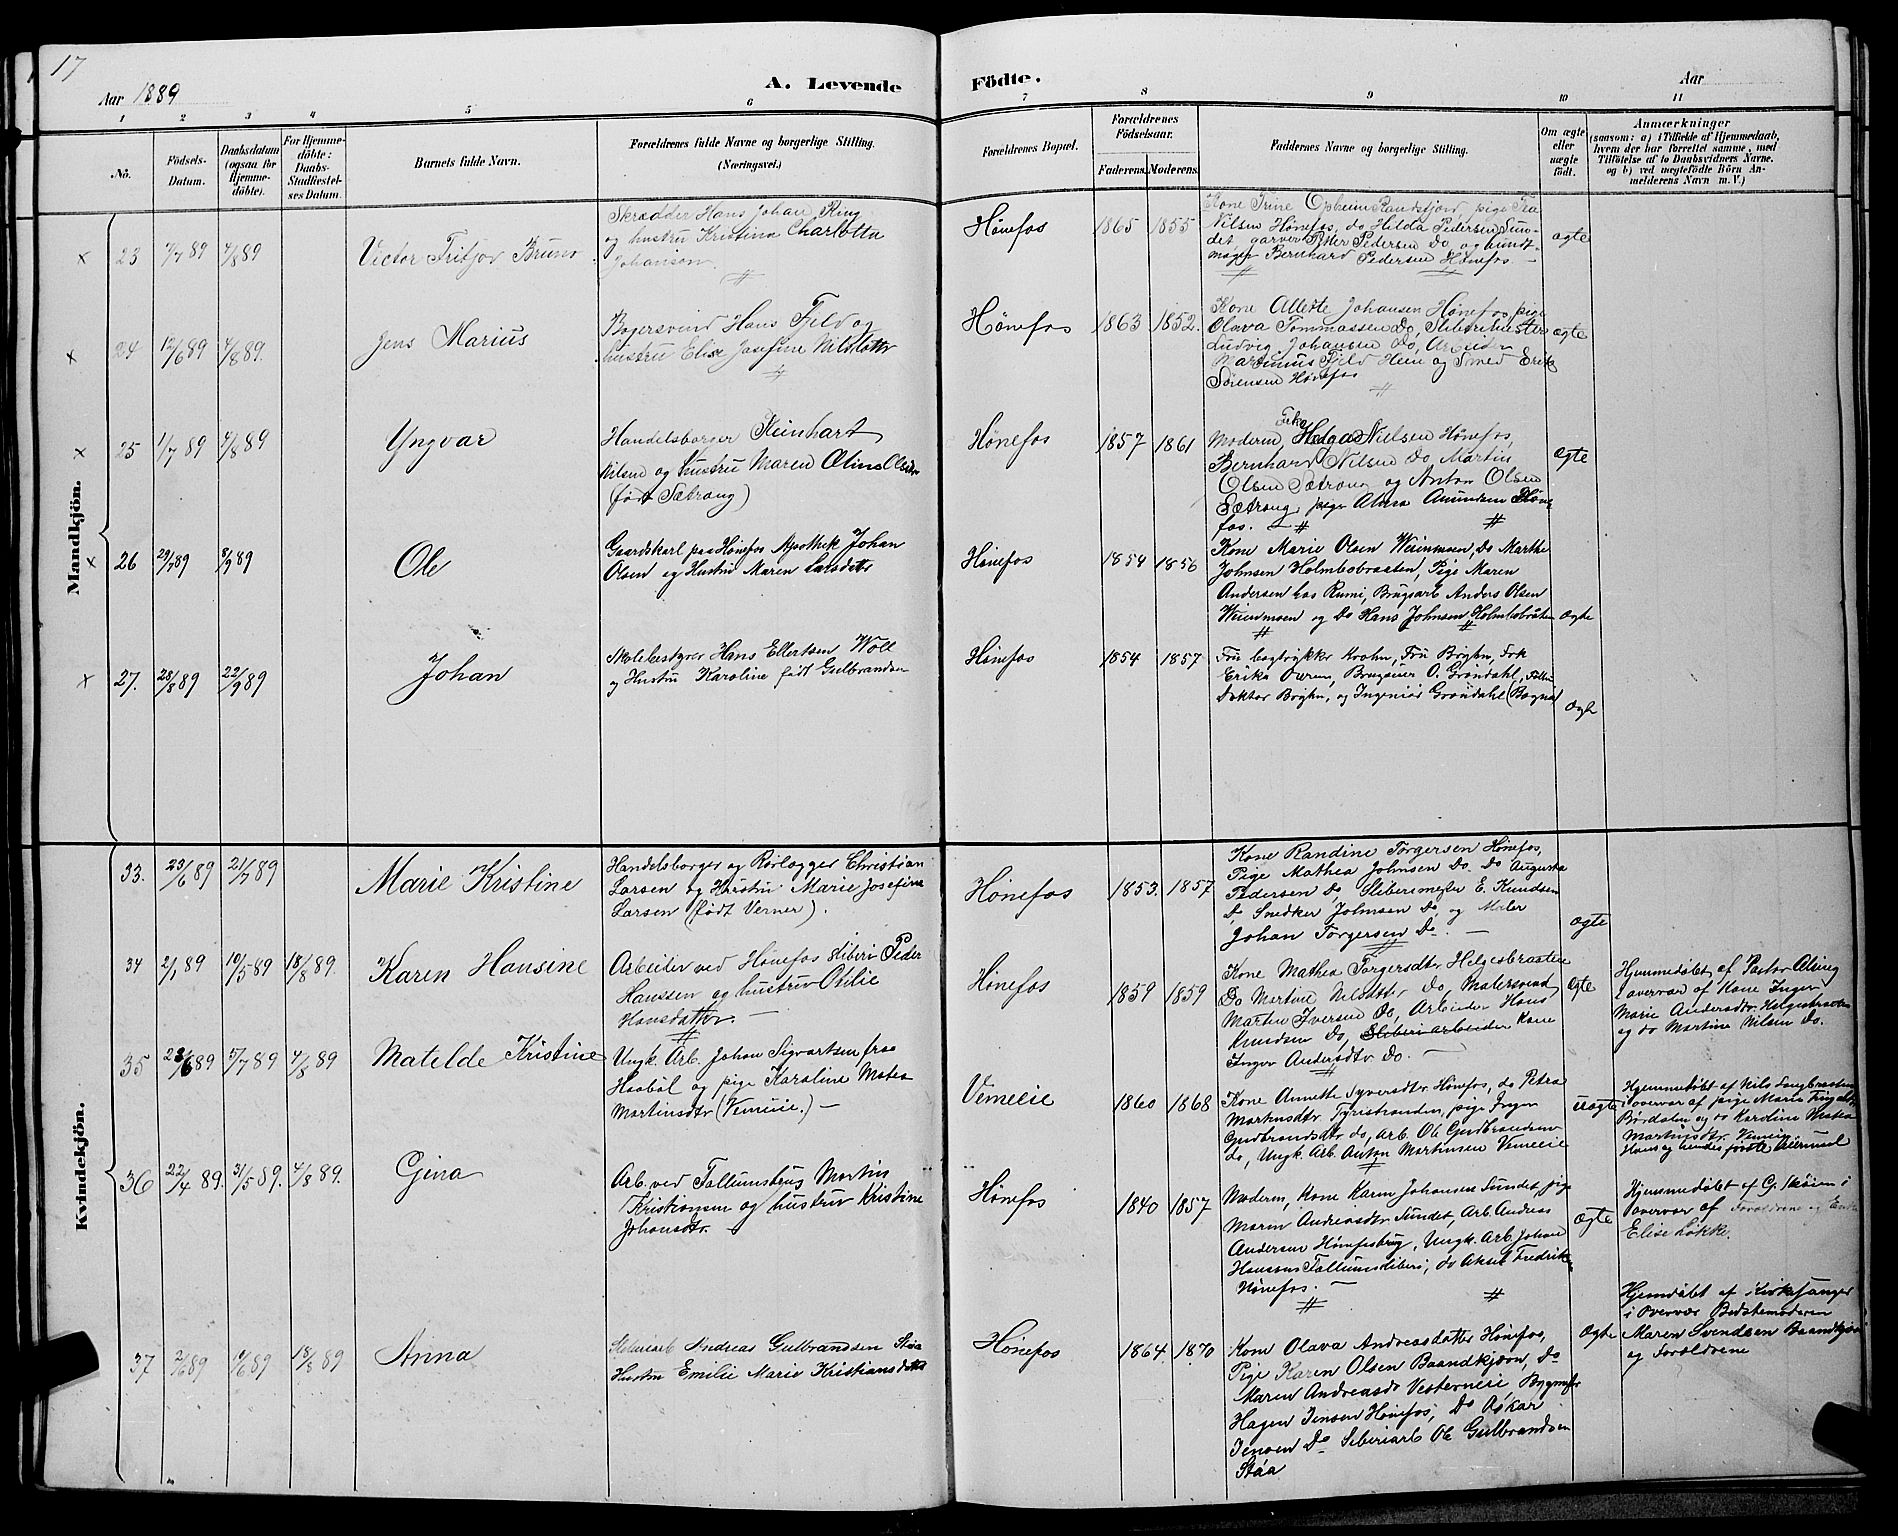 17
Aar 1889
A. Levende Födte.
Aar
1 2 3 4 5 6 7 8 9 10 11
No.
Födsels-Datum.
Daabsdatum (ogsaa for Hjemme-döbte).
For Hjemme-döbte: Daabs-Stadfæstel-ses Datum.
Barnets fulde Navn.
Forældrenes fulde Navne og borgerlige Stilling.
(Næringsvei.)
Forældrenes Bopæl.
Forældrenes Födselsaar.
Faderens. Moderens.
Faddernes Navne og borgerlige Stilling.
Om ægte eller uægte födt.
Anmærkninger
(saasom: a) i Tilfælde af Hjemmedaab,
hvem der har forrettet samme, med
Tilföielse af to Daabsvidners Navne.
og b) ved uægtefödte Börn An-
melderens Navn m. V.)
Mandkjön.
x 23 7/7 89 4/8 89 Victor Fritjor Bruno
Skrædder Hans Johan Ring
og hustru Kristina Charlotta
Johanson.
Hönefos 1865 1855
Kone Trine Opheim Randsfjord, pige
Nilsen Hönefos, do Hilda Pedersen Sun-
det, garver Petter Pedersen Do, og bundt-
mager Bernhard Pedersen Hönefos.
ægte
x 24 12/6 89 4/8 89. Jens Marius
Bagersvend Hans Fjeld og
hustru Elise Josefine Nilsdatter
Hönefos 1863 1852.
Kone Allette Johansen Hönefos, pige
Olava Tommassen Do, Sliberimester
Ludvig Johansen Do, Arbeider
Martinius Fjeld Hem og Smed Erik
Sörensen Hönefos
ægte
x 25 1/7 89 4/8 89 Yngvar
Handelsborger Reinhart
Nilsen og hustru Maren Oline Olsdtr
(födt Sætrang)
Hönefos 1857 1861
Moderen, Frk. Helga Nielsen Hönefos,
Bernhard Nilsen Do, Martin
Olsen Sætrang og Anton Olsen
Sætrang, pige Amundsen Höne-
fos.
ægte
x 26 29/7 89 8/9 89 Ole
Gaardskarl paa Hönefos Apothek Johan
Olsen og Hustru Maren Larsdatter
Hönefos 1854 1856
Kone Marie Olsen Weienmoen, Do Marthe
Johnsen Holmbobraaten, Pige Maren
Andersen hos Rumi, Brugsarb Anders Olsen
Weienmoen og Do Hans Johnsen Holmbobråten
ægte
x 27. 28/8 89 22/9 89 Johan
Skolebestyrer Hans Ellertsen Woll
og Hustru Karoline födt Gulbrandsen
Hönefos 1854 1857
Fru bogtrykker Krohn, Fru Bryhn, Frk
Erika Owren, Brugseier O. Gröndahl,
Doktor Bryhn, og Ingeniör Gröndahl (Bagna)
ægte
Kvindekjön.
33. 23/6 89 21/7 89 Marie Kristine
Handelsborger og Rörlægger Christian
Larsen og Hustru Marie Josefine
Larsen (födt Verner).
Hönefos 1853. 1857
Kone Randine Torgersen Hönefos,
Pige Mathea Johnsen Do. Do Augusta
Pedersen Do, Sliberimester E. Knudsen
D, Snedker Johnsen Do, og Maler
Johan Torgersen Do.
ægte
34 2/1 89 10/5 89 18/8 89. Karen Hansine
Arbeider ved Hönefos Sliberi Peder
Hanssen og hustru Otilie
Hansdatter.
Hönefos 1859 1859
Kone Mathea Torgersdtr Helgesbraaten
Do Martine Nilsdtr Do, Malersvend
Martin Iversen Do, Arbeider Hans
Knudsen Do, Sliberiarbeider Kone
Inger Andersdtr Do.
ægte
Hjemmedöbt af Pastor Alsing
i overvær af Kone Inger
Marie Andersdtr. Helgesbraaten
og do Martine Nilsen Do.
35 23/6 89 5/7 89 4/8 89 Matilde Kristine
Ungk. Arb. Johan Sigvartsen fra
Haaböl og pige Karoline Matea
Martinsdtr (Vemeie.)
Vemeeie 1860 1868
Kone Annette Syversdtr Hönefos, do Petra
Martinsdtr Tyristranden, pige Inger
Gudbrandsdtr do, Arb. Ole Gudbrandsen
do, Ungk. Arb. Anton Martinsen Vemeeie
uægte
Hjemmedöbt af Nils Langbraaten
i overvær af pige Marie
Bördalen og do Karoline Matea
Martinsdtr. Vemeie
Hans og hendes förste Leiermaal
36 22/4 89. 31/5 89. 4/8 89. Gina
Arb. ved Follumsbrug Martin
Kristiansen og hustru Kristine
Johansdtr.
Hönefos 1840 1857
Moderen, Kone Karin Johansen Sundet, pige
Maren Andreasdtr Sundet, Arb. Andreas
Andersen Hönefosbrug, Ungk. Arb. Johan
Hansen Follumsliberi, do Aksel Fredriks
Hönefos.
ægte
Hjemmedöbt af G. Sköien i
overvær af Forældrene og
Elise Lökke.
37 2/6 89 19/6 89 18/8 89 Anna
Sliberiarb Andreas Gulbrandsen Stáa
Hustru Emilie Marie Kristiansdatter
Hönefos 1864 1870
Kone Olava Andreasdatter Hönefos,
Pige Karen Olsen Baandkjörn, Do
Maren Andreasdr Vesterneie, Bygmester
Hagen Jensen Hönefos, Do Oskar
Jensen Do Sliberiarb Ole Gulbrandsen
Stáa
ægte
Hjemdöbt af Kirkesanger
i Overvær Bedstemoderen
Maren Svendsen Baandkjörn
og Forældrene